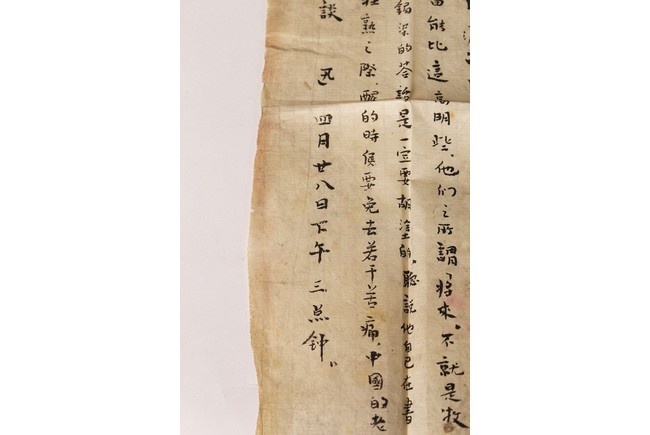 能比這高明些，他們之所謂「將來」，不就是牧
錫琛的答話是一定要胡塗的，聽說他自己在書
熟之際，醒的時候要免去若干苦痛，中國的老
談 迅 四月廿八日下午三点鈡。